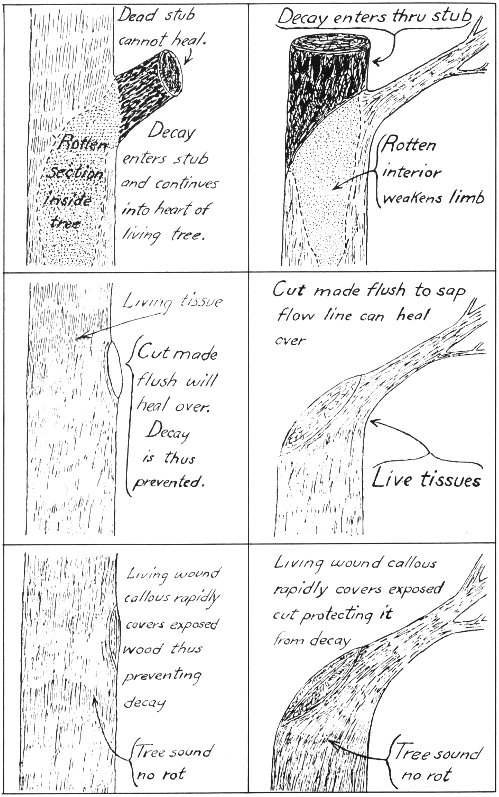 Dead stub
cannot heal.
Decay
enters stub
and continues
into heart of
living tree.
Rotten
section
inside
tree
Decay enters thru stub
Rotten
interior
weakens limb
Living tissue
Cut made
flush will
heal over.
Decay
is thus
prevented.
Cut made flush to sap
flow line can heal
over
Live tissues
Living wound
callous rapidly
covers exposed
wood thus
preventing
decay
Tree sound
no rot
Living wound callous
rapidly covers exposed
cut protecting it
from decay
Tree sound
no rot